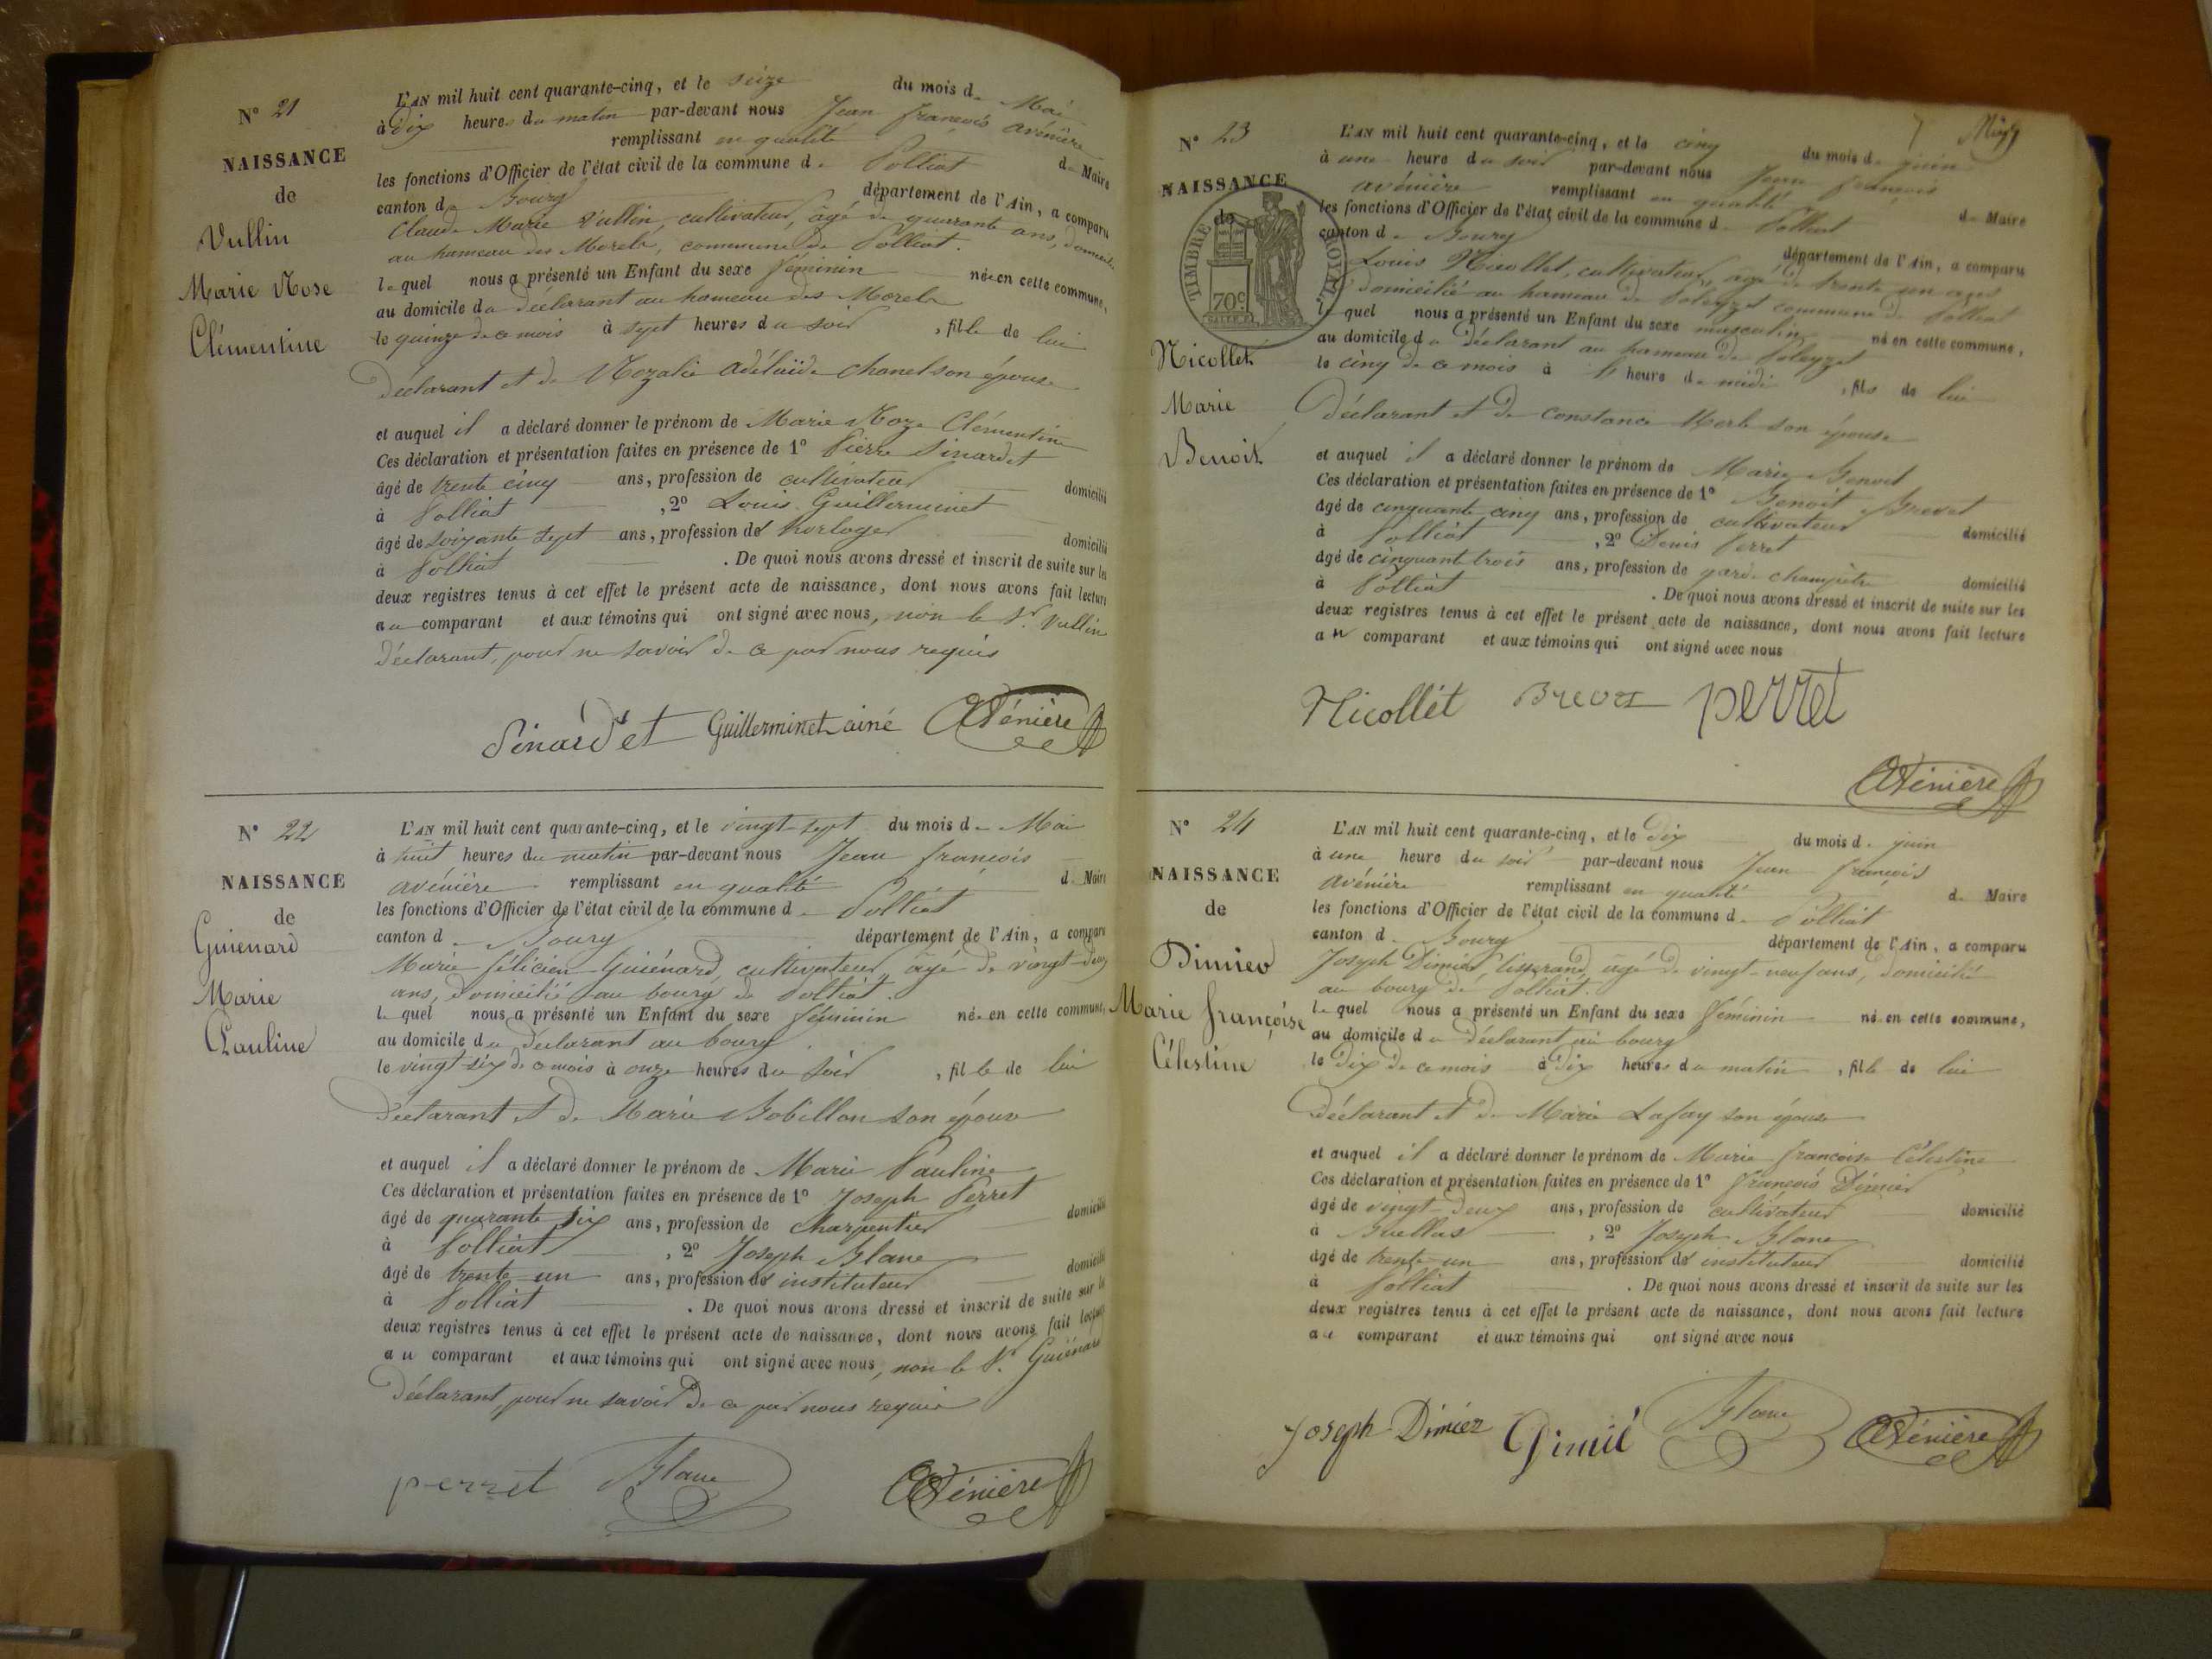 N° 21
NAISSANCE
de
Vullin
Marie Rose
Clémentine
L'AN mil huit cent quarante-cinq, et le seize du mois de Mai
à dix heures du matin par-devant nous Jean françois avénière
remplissant en qualité de Maire
les fonctions d'Officier de l'état civil de la commune de Polliat
canton de Bourg département de l'Ain, a comparu
Claude Marie Vullin, cultivateur, âgé de quarante ans, domicilié
au hameau des Morels, commune de Polliat.
lequel nous a présenté un Enfant du sexe féminin née en cette commune,
au domicile du déclarant au hameau des Morels
le quinze de ce mois à sept heures du soir, fille de lui
Déclarant et de Rozalie adélaïde chanel son épouse
et auquel il a déclaré donner le prénom de Marie Roze Clémentine
Ces déclaration et présentation faites en présence de 1° Pierre Sinardet
âgé de trente cinq ans, profession de cultivateur domicilié
à Polliat, 2° Louis Guillerminet
âgé de soixante sept ans, profession de horloger domicilié
à Polliat. De quoi nous avons dressé et inscrit de suite sur les
deux registres tenus à cet effet le présent acte de naissance, dont nous avons fait lecture
au comparant et aux témoins qui ont signé avec nous, non le Sr. Vullin
Déclarant, pour ne savoir de ce par nous requis
Sinardet Guillerminet ainé Avénière
N° 22
NAISSANCE
de
Guienard
Marie
Pauline
L'AN mil huit cent quarante-cinq, et le vingt-sept du mois de Mai
à huit heures du matin par-devant nous Jean françois
avénière remplissant en qualité de Maire
les fonctions d'Officier de l'état civil de la commune de Polliat
canton de Bourg département de l'Ain, a comparu
Marie félicien Guiénard, cultivateur, âgé de vingt-deux
ans, domicilié au bourg de Polliat.
lequel nous a présenté un Enfant du sexe féminin née en cette commune,
au domicile du déclarant au bourg
le vingt-six de ce mois à onze heures du soir, fille de lui
Déclarant et de Marie Bobillon son épouse
et auquel il a déclaré donner le prénom de Marie Pauline
Ces déclaration et présentation faites en présence de 1° Joseph Perret
âgé de quarante six ans, profession de charpentier domicilié
à Polliat, 2° Joseph Blanc
âgé de trente-un ans, profession de instituteur domicilié
à Polliat. De quoi nous avons dressé et inscrit de suite sur les
deux registres tenus à cet effet le présent acte de naissance, dont nous avons fait lecture
au comparant et aux témoins qui ont signé avec nous, non le Sr. Guiénard
Déclarant, pour ne savoir de ce par nous requis
perret Blanc Avénière
N° 23
NAISSANCE
de
TIMBRE ROYAL
70c
Nicollet
Marie
Benoit
7
L'AN mil huit cent quarante-cinq, et le cinq du mois de juin
à une heure du soir par-devant nous Jean françois
avénière remplissant en qualité de Maire
les fonctions d'Officier de l'état civil de la commune de Polliat
canton de Bourg département de l'Ain, a comparu
Louis Nicollet, cultivateur, âgé de trente un ans
domicilié au hameau de commune de Polliat
lequel nous a présenté un Enfant du sexe masculin né en cette commune,
au domicile du déclarant au hameau de
le cinq de ce mois à heure de midi, fils de lui
Déclarant et de Constance Merle son épouse
et auquel il a déclaré donner le prénom de Marie Benoit
Ces déclaration et présentation faites en présence de 1° Benoit Brevet
âgé de cinquante cinq ans, profession de cultivateur domicilié
à Polliat, 2° Denis Perret
âgé de cinquante trois ans, profession de garde champêtre domicilié
à Polliat. De quoi nous avons dressé et inscrit de suite sur les
deux registres tenus à cet effet le présent acte de naissance, dont nous avons fait lecture
au comparant et aux témoins qui ont signé avec nous
Nicollét perret
Avénière
N° 24
NAISSANCE
de
Dimier
Marie françoise
Célestine
L'AN mil huit cent quarante-cinq, et le dix du mois de juin
à une heure du soir par-devant nous Jean françois
avénière remplissant en qualité de Maire
les fonctions d'Officier de l'état civil de la commune de Polliat
canton de Bourg département de l'Ain, a comparu
Joseph Dimier, tisserand, âgé de vingt-neuf ans, domicilié
au bourg de Polliat.
lequel nous a présenté un Enfant du sexe féminin né en cette commune,
au domicile du déclarant au bourg
le dix de ce mois à dix heures du matin, fille de lui
Déclarant et de Marie Lafay son épouse
et auquel il a déclaré donner le prénom de Marie francoise Célestine
Ces déclaration et présentation faites en présence de 1° françois Dimier
âgé de vingt-deux ans, profession de cultivateur domicilié
à Buellas, 2° Joseph Blanc
âgé de trente-un ans, profession de instituteur domicilié
à Polliat. De quoi nous avons dressé et inscrit de suite sur les
deux registres tenus à cet effet le présent acte de naissance, dont nous avons fait lecture
au comparant et aux témoins qui ont signé avec nous
Joseph Dimier Dimié Blanc Avénière